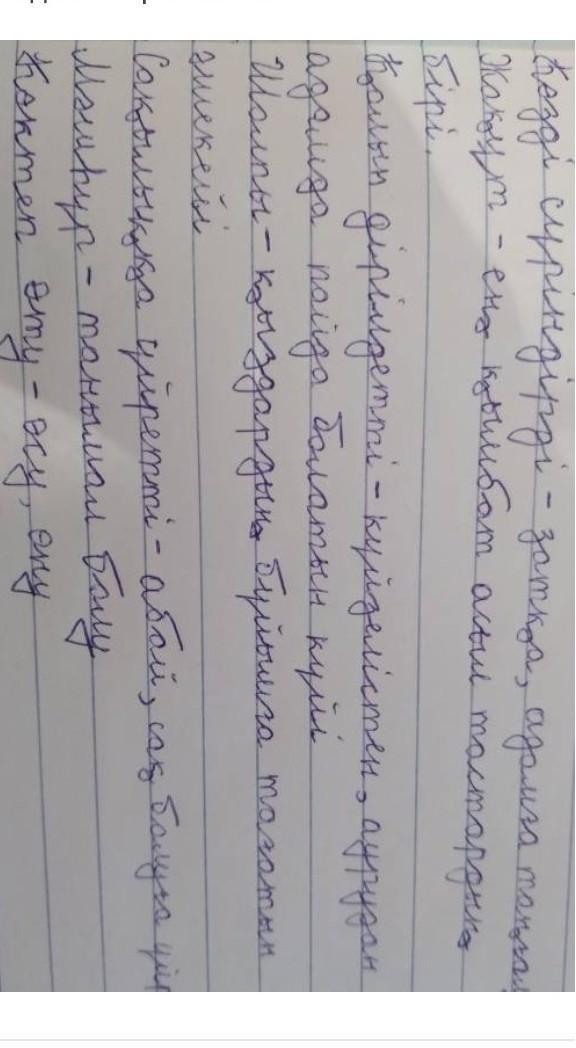 Көзді сүріндірді - затқа, адамға таңғал
Жақұт - ең қымбат асыл тастардың
бірі.
Қолын дірілдетті - күйзелістен, аурудан
адамда пайда болатын күйі
Шолпы - қыздардың бұрымға тағатын
әшекейі
Сақылыққа үйретті - абай, сақ болуға үйр
Мәшһүр - танымал болу
Көктеп өту - өсу, өну